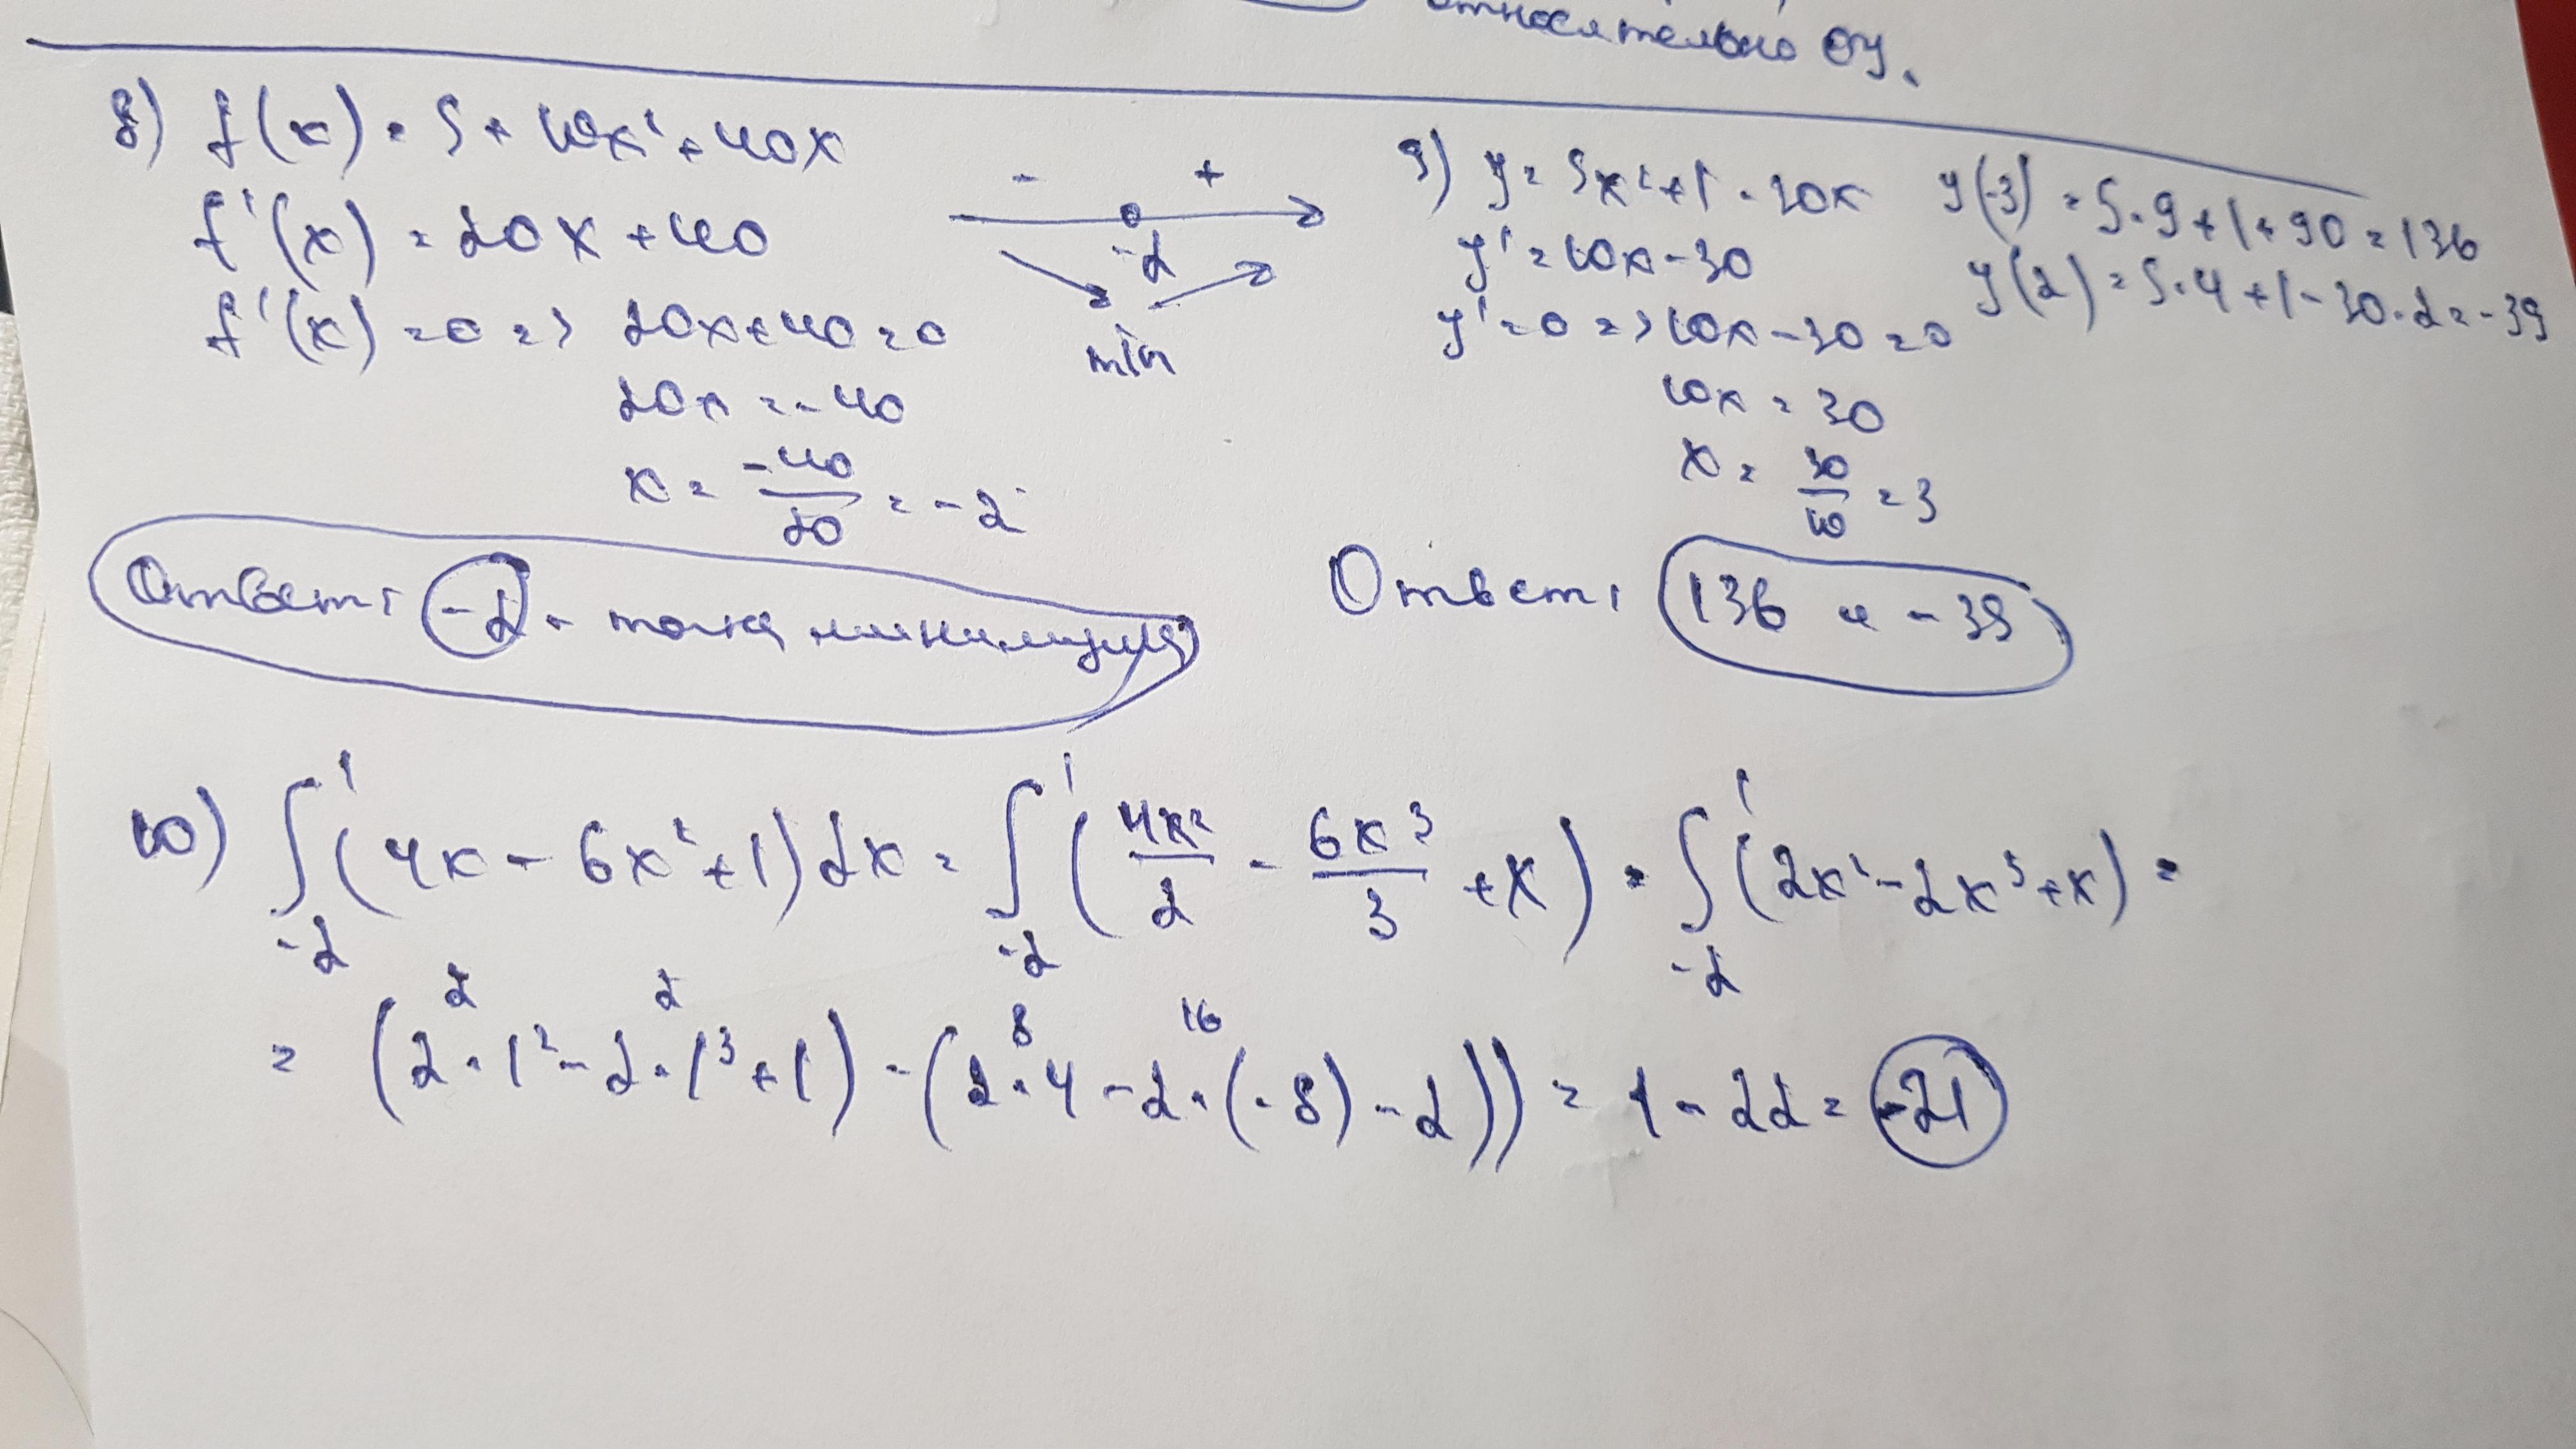 относительно OY.
8) f(x) = 5 + 10x² + 40x
f'(x) = 20x + 40
f'(x) = 0 => 20x + 40 = 0
20x = -40
x = -40/20 = -2
- +
-2
min
Ответ: -2 - точка минимума
9) y = 5x² + 1 - 30x
y' = 10x - 30
y' = 0 => 10x - 30 = 0
10x = 30
x = 30/10 = 3
y(-3) = 5·9 + 1 + 90 = 136
y(2) = 5·4 + 1 - 30·2 = -39
Ответ: 136 и -39
10) ∫₋₂¹ (4x - 6x² + 1) dx = ∫₋₂¹ (4x²/2 - 6x³/3 + x) = ∫₋₂¹ (2x² - 2x³ + x) =
2 2 8 16
= (2·1² - 2·1³ + 1) - (2·4 - 2·(-8) - 2)) = 1 - 22 = -21